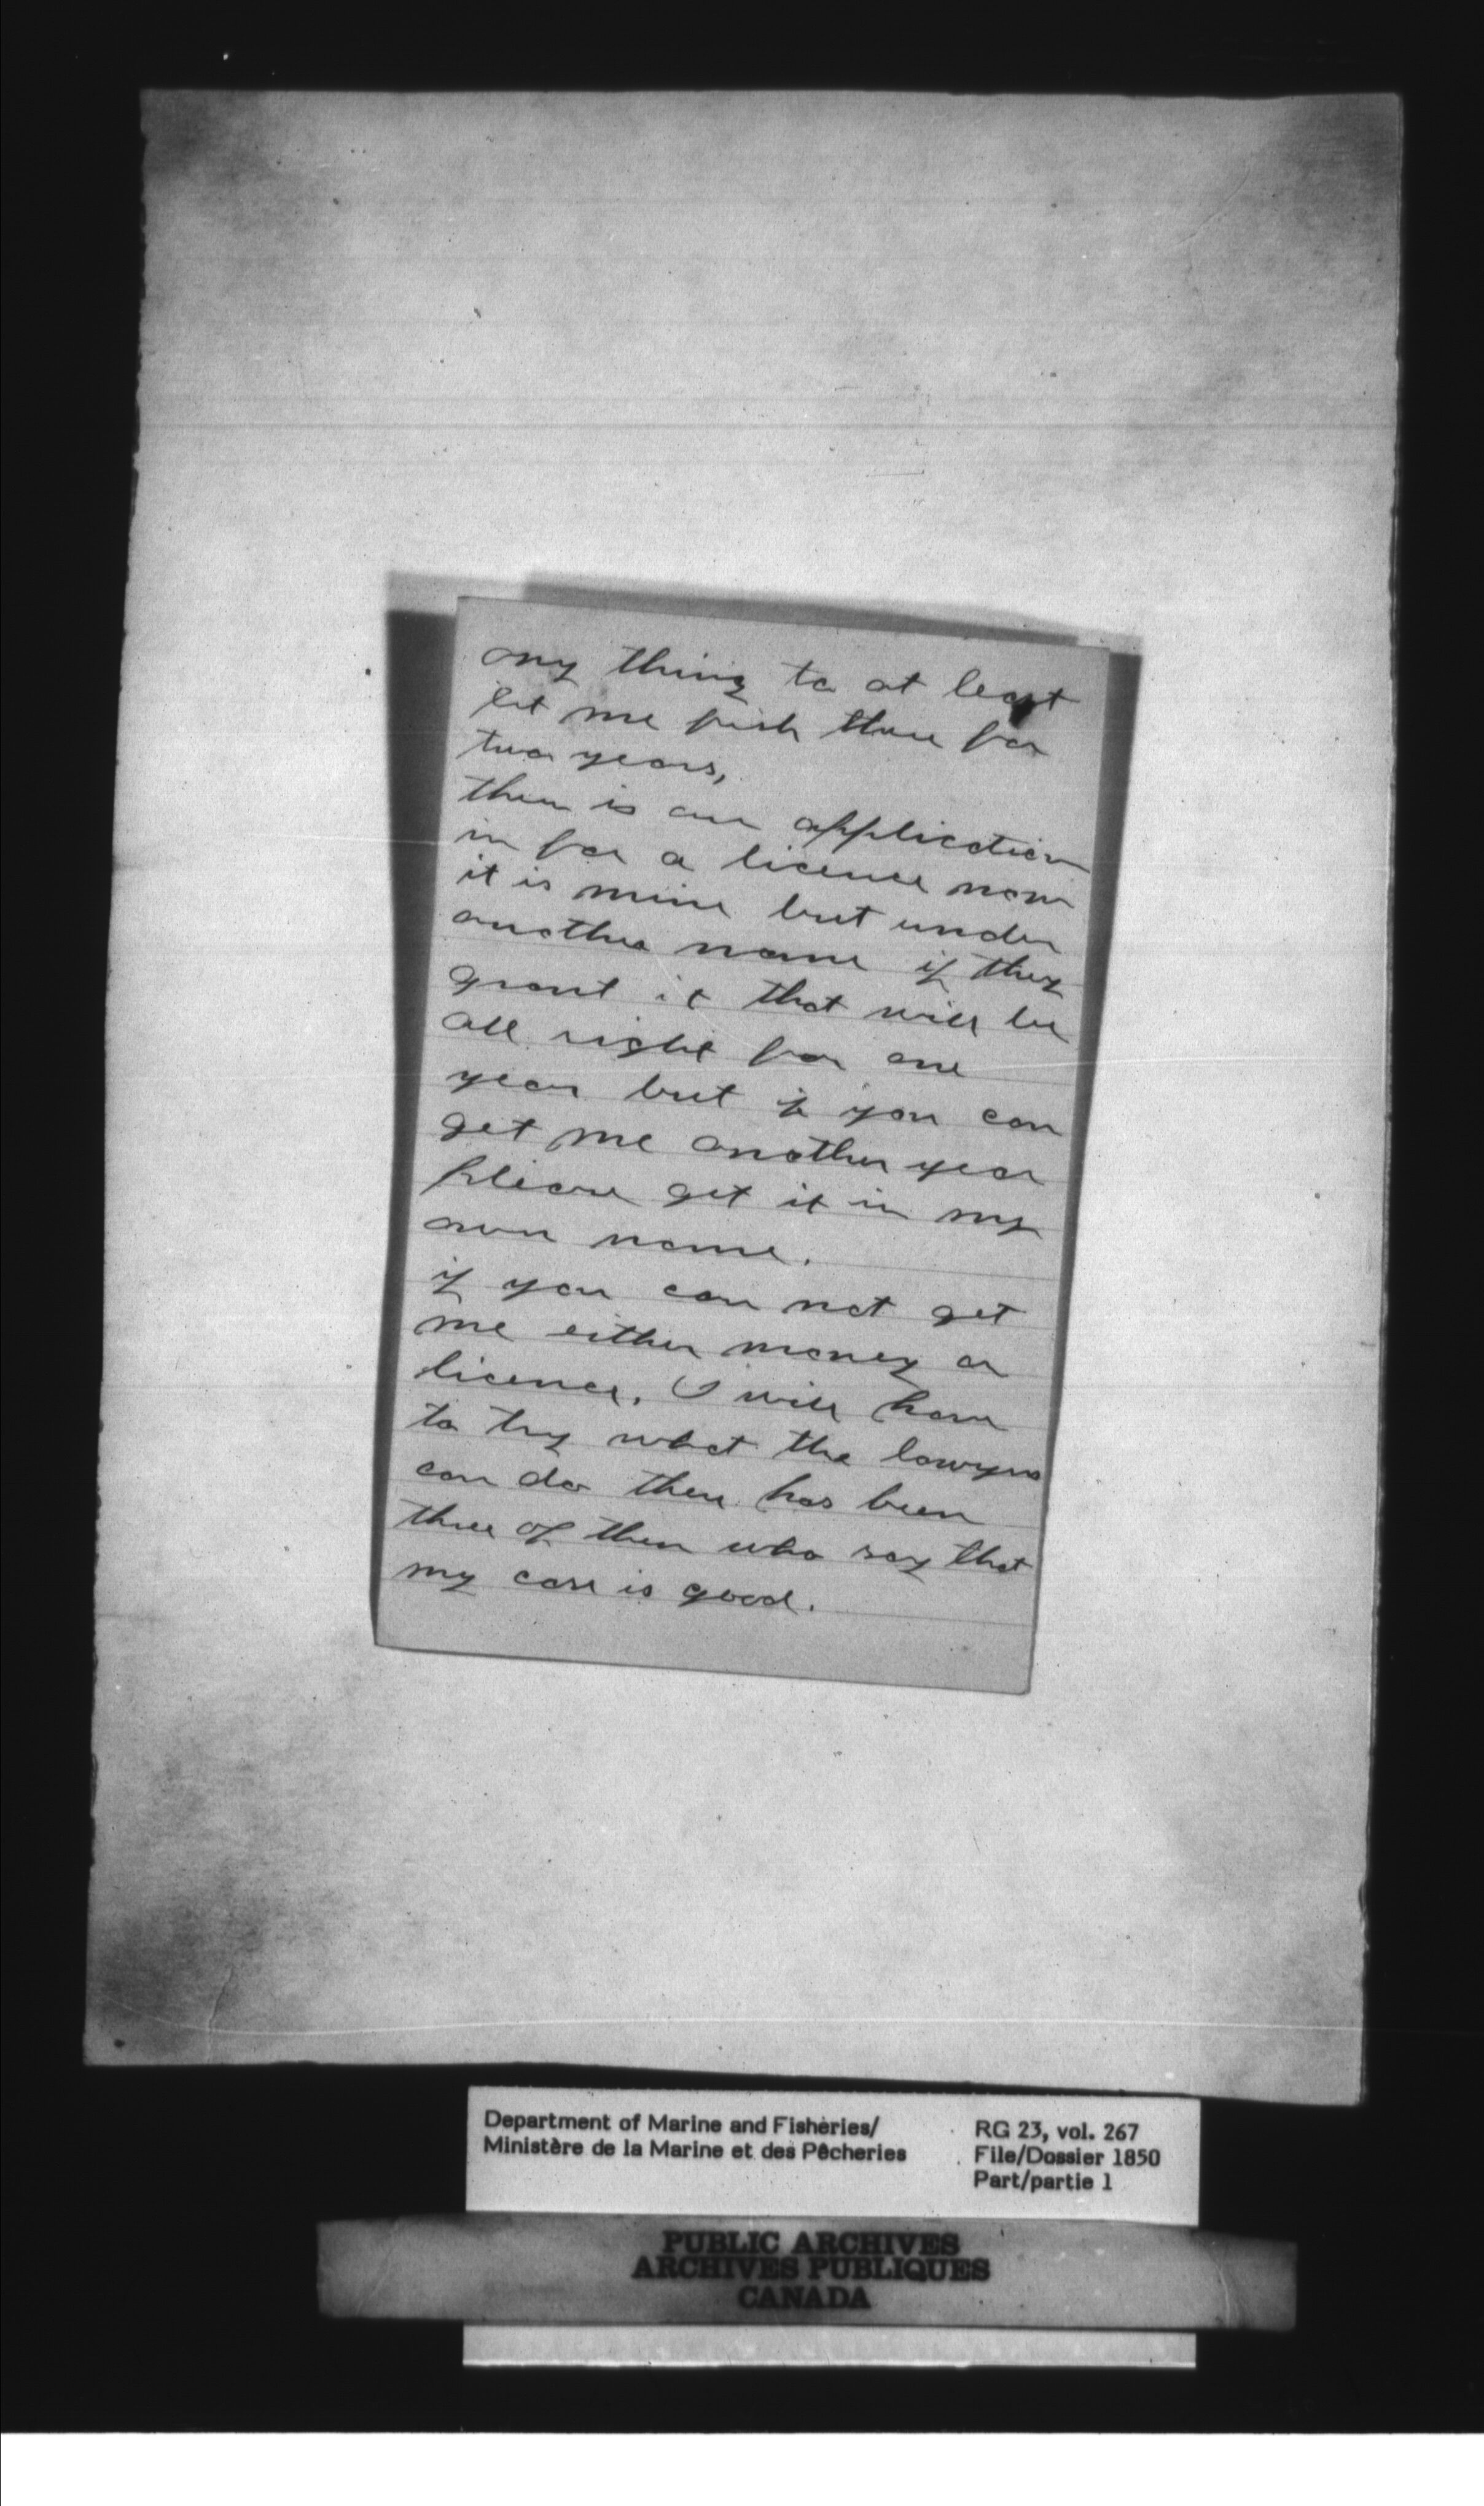 any thing to at least
let me fish there for
two years,
there is an application
in for a licence now
it is mine but under
another name if they
grant it that will be
all right for one
year but if you can
get me another year
please get it in my
own name.
if you can not get
me either money or
licence. I will have
to try what the lawyers
can do there has been
three of them who say that
my case is good.
Department of Marine and Fisheries/
Ministère de la Marine et des Pêcheries
RG 23, vol. 267
File/Dossier 1850
Part/partie 1
PUBLIC ARCHIVES
ARCHIVES PUBLIQUES
CANADA